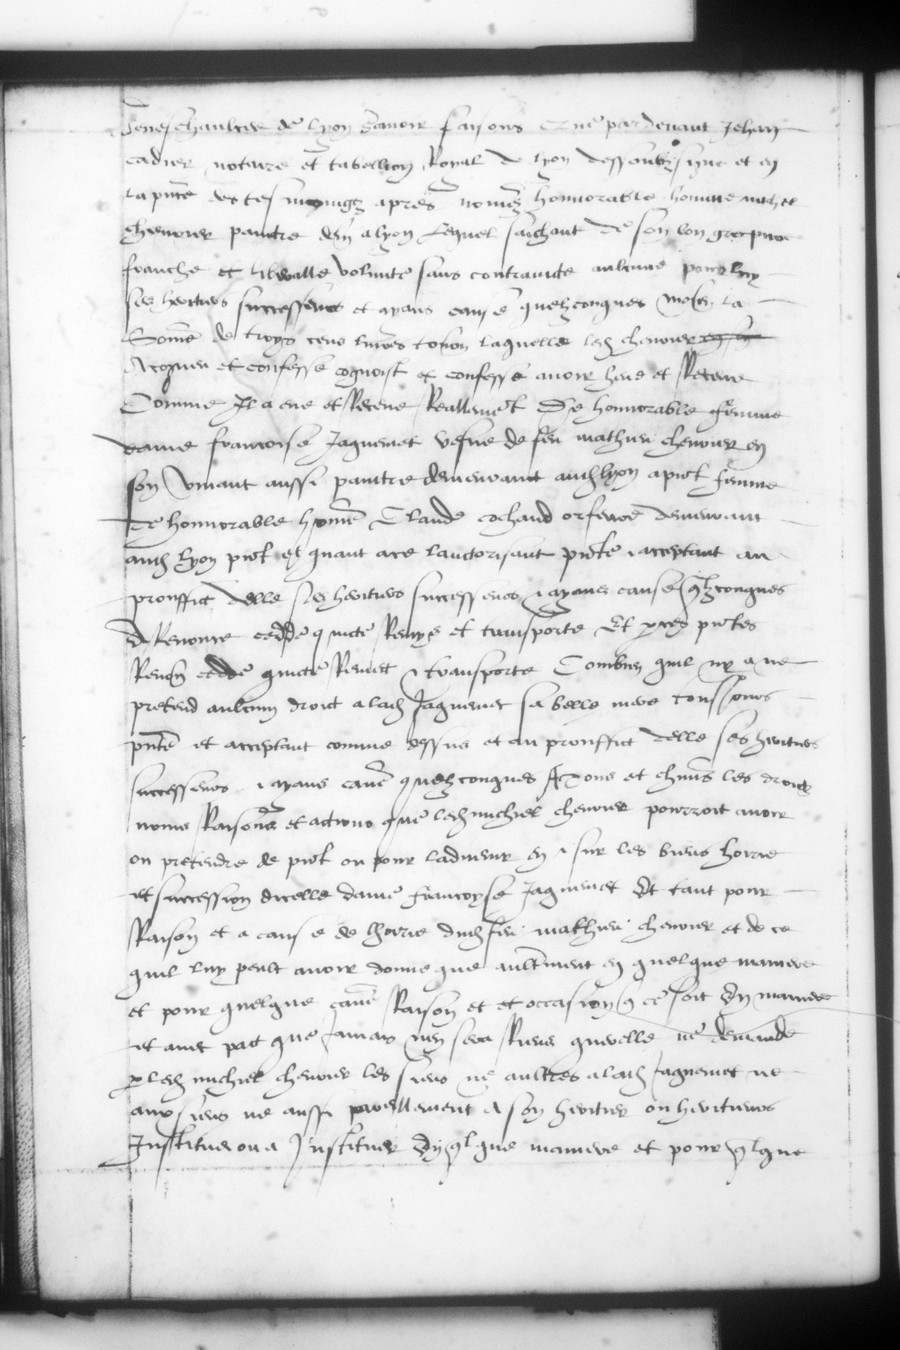 Seneschaulcee de Lyon scavoir faisons que pardevant Jehan
cadier notaire et tabellion Royal de lyon dessoubzsigne et en
la pnce des tesmoingz apres nomez honnorable homme michel
chenevier paintre dem a lyon Lequel saichant de son bon gre pure
franche et liberalle volunte sans contraincte aulcune pour luy
ses heritiers successeurs et ayans cause quelzconques moien la
Somme de troys cens livres tourn laquelle led chenevier
A congneu et confesse cognoist et confesse avoir heue et Receue
Comme Il a eue et Receue Reallement De honnorable femme
dame francoise Jaquemet vefve de feu mathieu chenevier en
son vivant aussi paintre demeurant aud lyon a pnt femme
de honnorable home Claude cochard orfevre demeurant
aud lyon pnt et quant a ce lauctorisant pnte et acceptant au
prouffit delle ses heritiers successeurs et ayans cause qlzconques
A Renonce cedde quicte Remys et transporte Et par ces pntes
Renon cedde quicte Remect et transporte Combien quil ny a ne
pretend aulcun droit a lad Jaquemet sa belle mere
pnte et acceptant comme dessus et au prouffit delle ses heritiers
successeurs et ayans cause quelzconques Tous et chuns les droictz
noms Raisons et actions que led michel chenevier pourroit avoir
ou pretendre de pnt ou pour ladvenir en et sur les biens hoirie
et succession dicelle dame francoyse Jaquemet Et tant pour
Raison et a cause de lhoirie dud feu mathieu chenevier et de ce
quil luy peult avoir donne que aultrement en quelque maniere
et pour quelque cause Raison et et occasion q ce soit En maniere
et avec pact que Jamais nen sera Riens querelle ne demande
p led michel chenevier les siens ne aultres a lad Jaquemet ne
aux siens ne aussi pareillement a son heritier ou heritiers
Institue ou a Instituer En qlque maniere et pour qlque